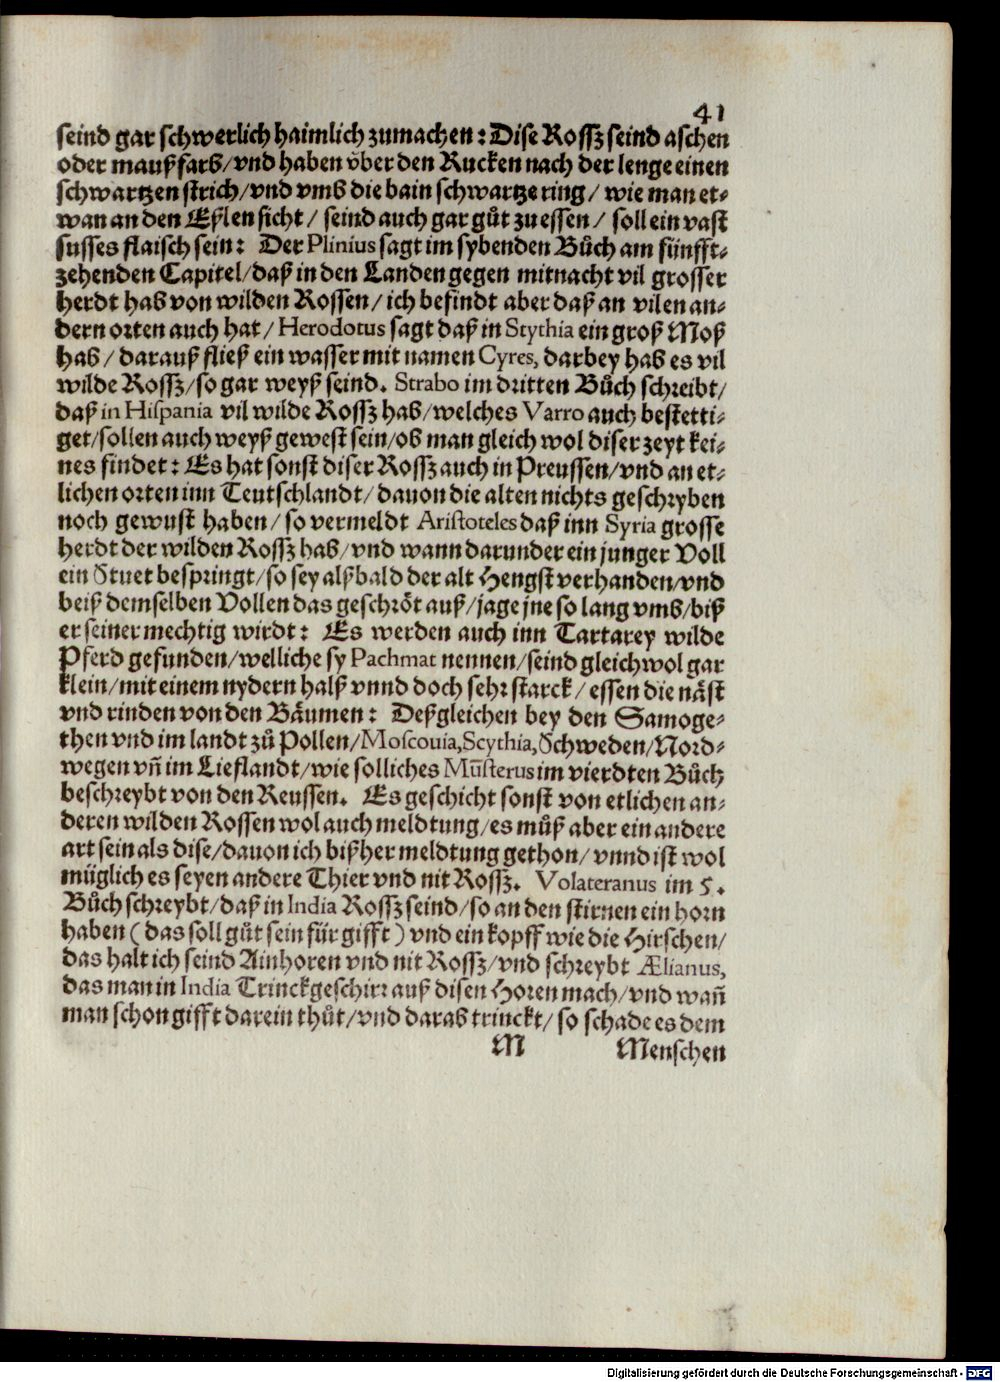 41
seind gar schwerlich haimlich zumachen: Dise Rossz seind aschen
oder maußfarb/vnd haben vͤber den Rucken nach der lenge einen
schwartzen strich/vnd vmb die bain schwartze ring/ wie man et⸗
wan an den Eßlen sicht/ seind auch gar gůt zu essen/ soll ein vast
susses flaisch sein: Der Plinius sagt im sybenden Bůch am fünfft⸗
zehenden Capitel/daß in den Landen gegen mitnacht vil grosser
herdt hab von wilden Rossen/ ich befindt aber daß an vilen an⸗
dern orten auch hat/ Herodotus sagt daß in Stythia ein groß Moß
hab/ darauß fließ ein wasser mit namen Cyres, darbey hab es vil
wilde Rossz/so gar weyß seind. Strabo im dritten Bůch schreibt/
daß in Hispania vil wilde Rossz hab/welches Varro auch bestetti⸗
get/sollen auch weyß gewest sein/ob man gleich wol diser zeyt kei⸗
nes findet: Es hat sonst diser Rossz auch in Preussen/vnd an et⸗
lichen orten inn Teutschlandt/dauon die alten nichts geschryben
noch gewust haben/ so vermeldt Aristoteles daß inn Syria grosse
herdt der wilden Rossz hab/vnd wann darunder ein junger Voll
ein Stuet bespringt/so sey alßbald der alt Hengst verhanden/vnd
beiß demselben Vollen das geschröt auß/jage jne so lang vmb/biß
er seiner mechtig wirdt: Es werden auch inn Tartarey wilde
Pferd gefunden/welliche sy Pachmat nennen/seind gleichwol gar
klein/mit einem nydern halß vnnd doch sehr starck/ essen die näst
vnd rinden von den Bäumen: Deßgleichen bey den Samoge⸗
then vnd im landt zů Pollen/Moscouia,Scythia,Schweden/Nord⸗
wegen vñ im Lieflandt/wie solliches Mūsterus im vierdten Bůch
beschreybt von den Reussen. Es geschicht sonst von etlichen an⸗
deren wilden Rossen wol auch meldtung/es můß aber ein andere
art sein als dise/dauon ich bißher meldtung gethon/vnnd ist wol
müglich es seyen andere Thier vnd nit Rossz. Volateranus im 5.
Bůch schreybt/daß in India Rossz seind/so an den stirnen ein horn
haben (das soll gůt sein für gifft) vnd ein kopff wie die Hirschen/
das halt ich seind Ainhoren vnd nit Rossz/vnd schreybt Ælianus,
das man in India Trinckgeschirr auß disen Horen mach/vnd wañ
man schon gifft darein thůt/vnd darab trinckt/ so schade es dem
M Menschen
Digitalisierung gefördert durch die Deutsche Forschungsgemeinschaft - DFG